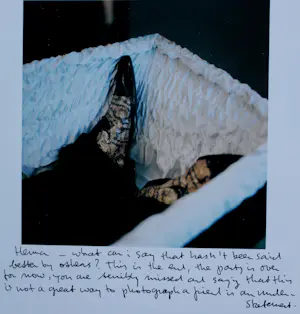 Heman – what can i say that hasn't been said
better by others? This is the end, the party is over
for now, you are terribly missed and saying that this
is not a great way to photograph a friend is an under-
statement.